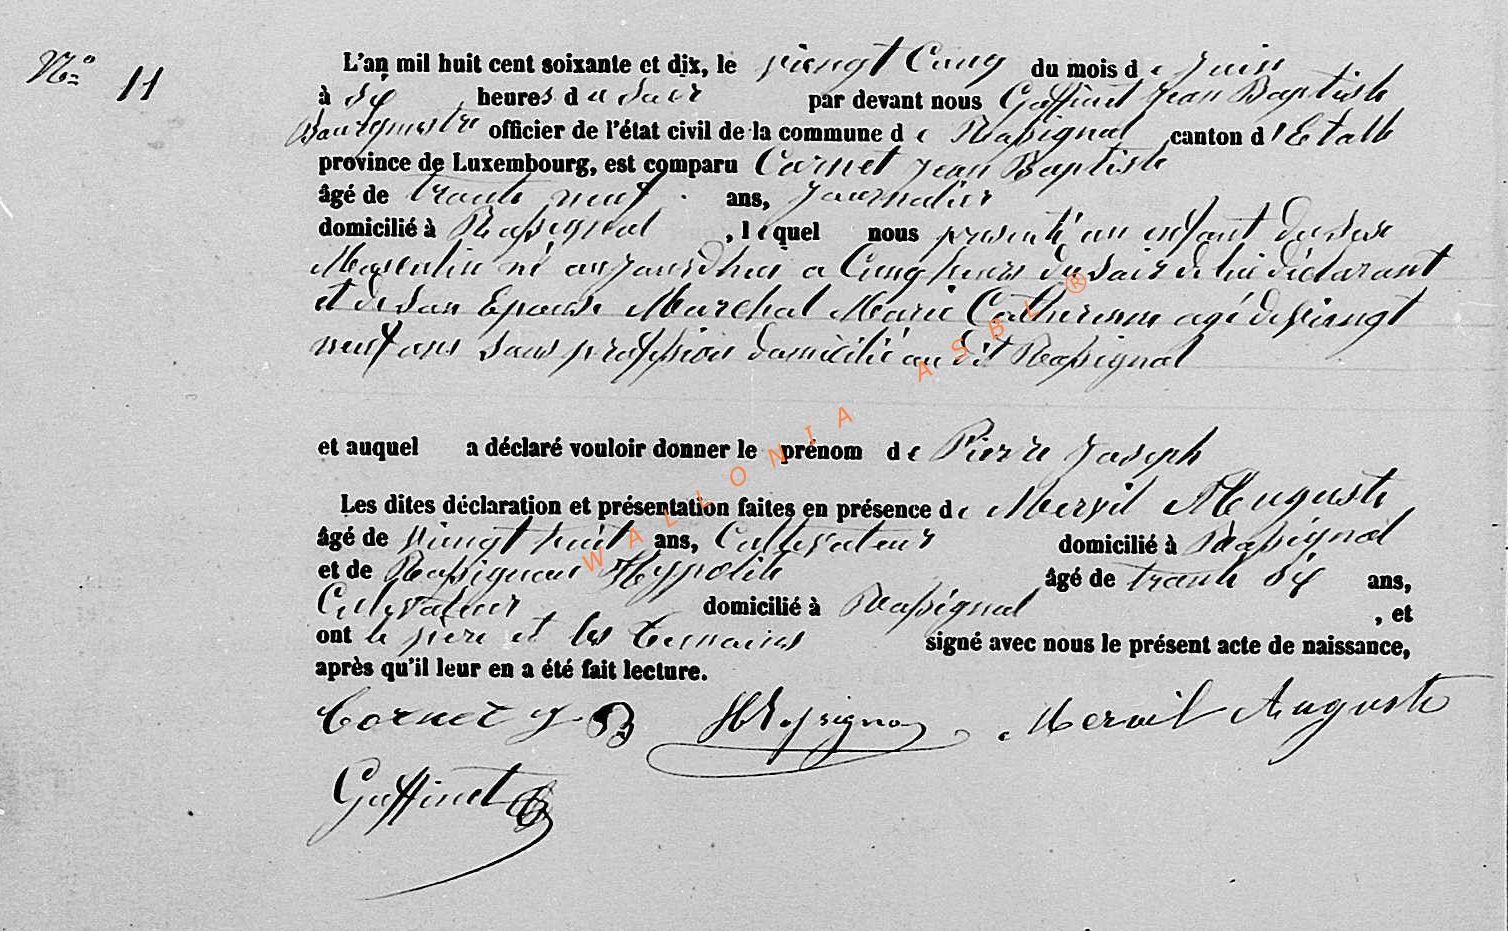 N° 11
L'an mil huit cent soixante et dix, le viengt Cinq du mois de Juin
à six heures du Soir par devant nous Gaffinet Jean Baptiste
Bourgmestre officier de l'état civil de la commune de Rossignol canton d'Etalle
province de Luxembourg, est comparu Cornet Jean Baptiste
âgé de trante neuf ans, Journalier
domicilié à Rossignol, lequel nous presenté un enfant du sexe
Masculin né aujourdhui a Cinq heures du Soir de lui déclarant
et de Son Epouse Marchal Marie Catherinne agé de viengt
neuf ans Sans profession domicilié au dit Rossignol
et auquel a déclaré vouloir donner le prénom de Pierre Joseph
Les dites déclaration et présentation faites en présence de Mervil Auguste
âgé de viengt huit ans, Cultivateur domicilié à Rossignol
et de Rossignon Hyppolite âgé de trante six ans,
Cultivateur domicilié à Rossignol, et
ont le père et les temoins signé avec nous le présent acte de naissance,
après qu'il leur en a été fait lecture.
Cornet J B H Rossignon Mervil Auguste
Gaffinet
WALLONIA ASBL ®